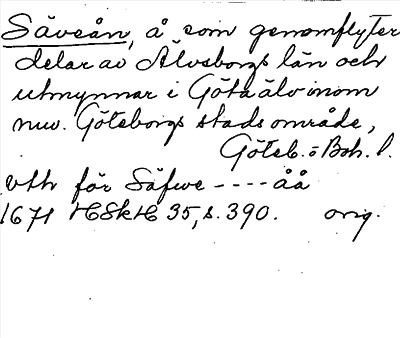 Säveån, å som genomflyter
delar av Älvsborgs län och
utmynnar i Göta älv inom
nuv. Göteborgs stads område,
Göteb. o Boh. l.
vth för Säfwe ---- åå
1671 HSkH 35, s. 390. orig.